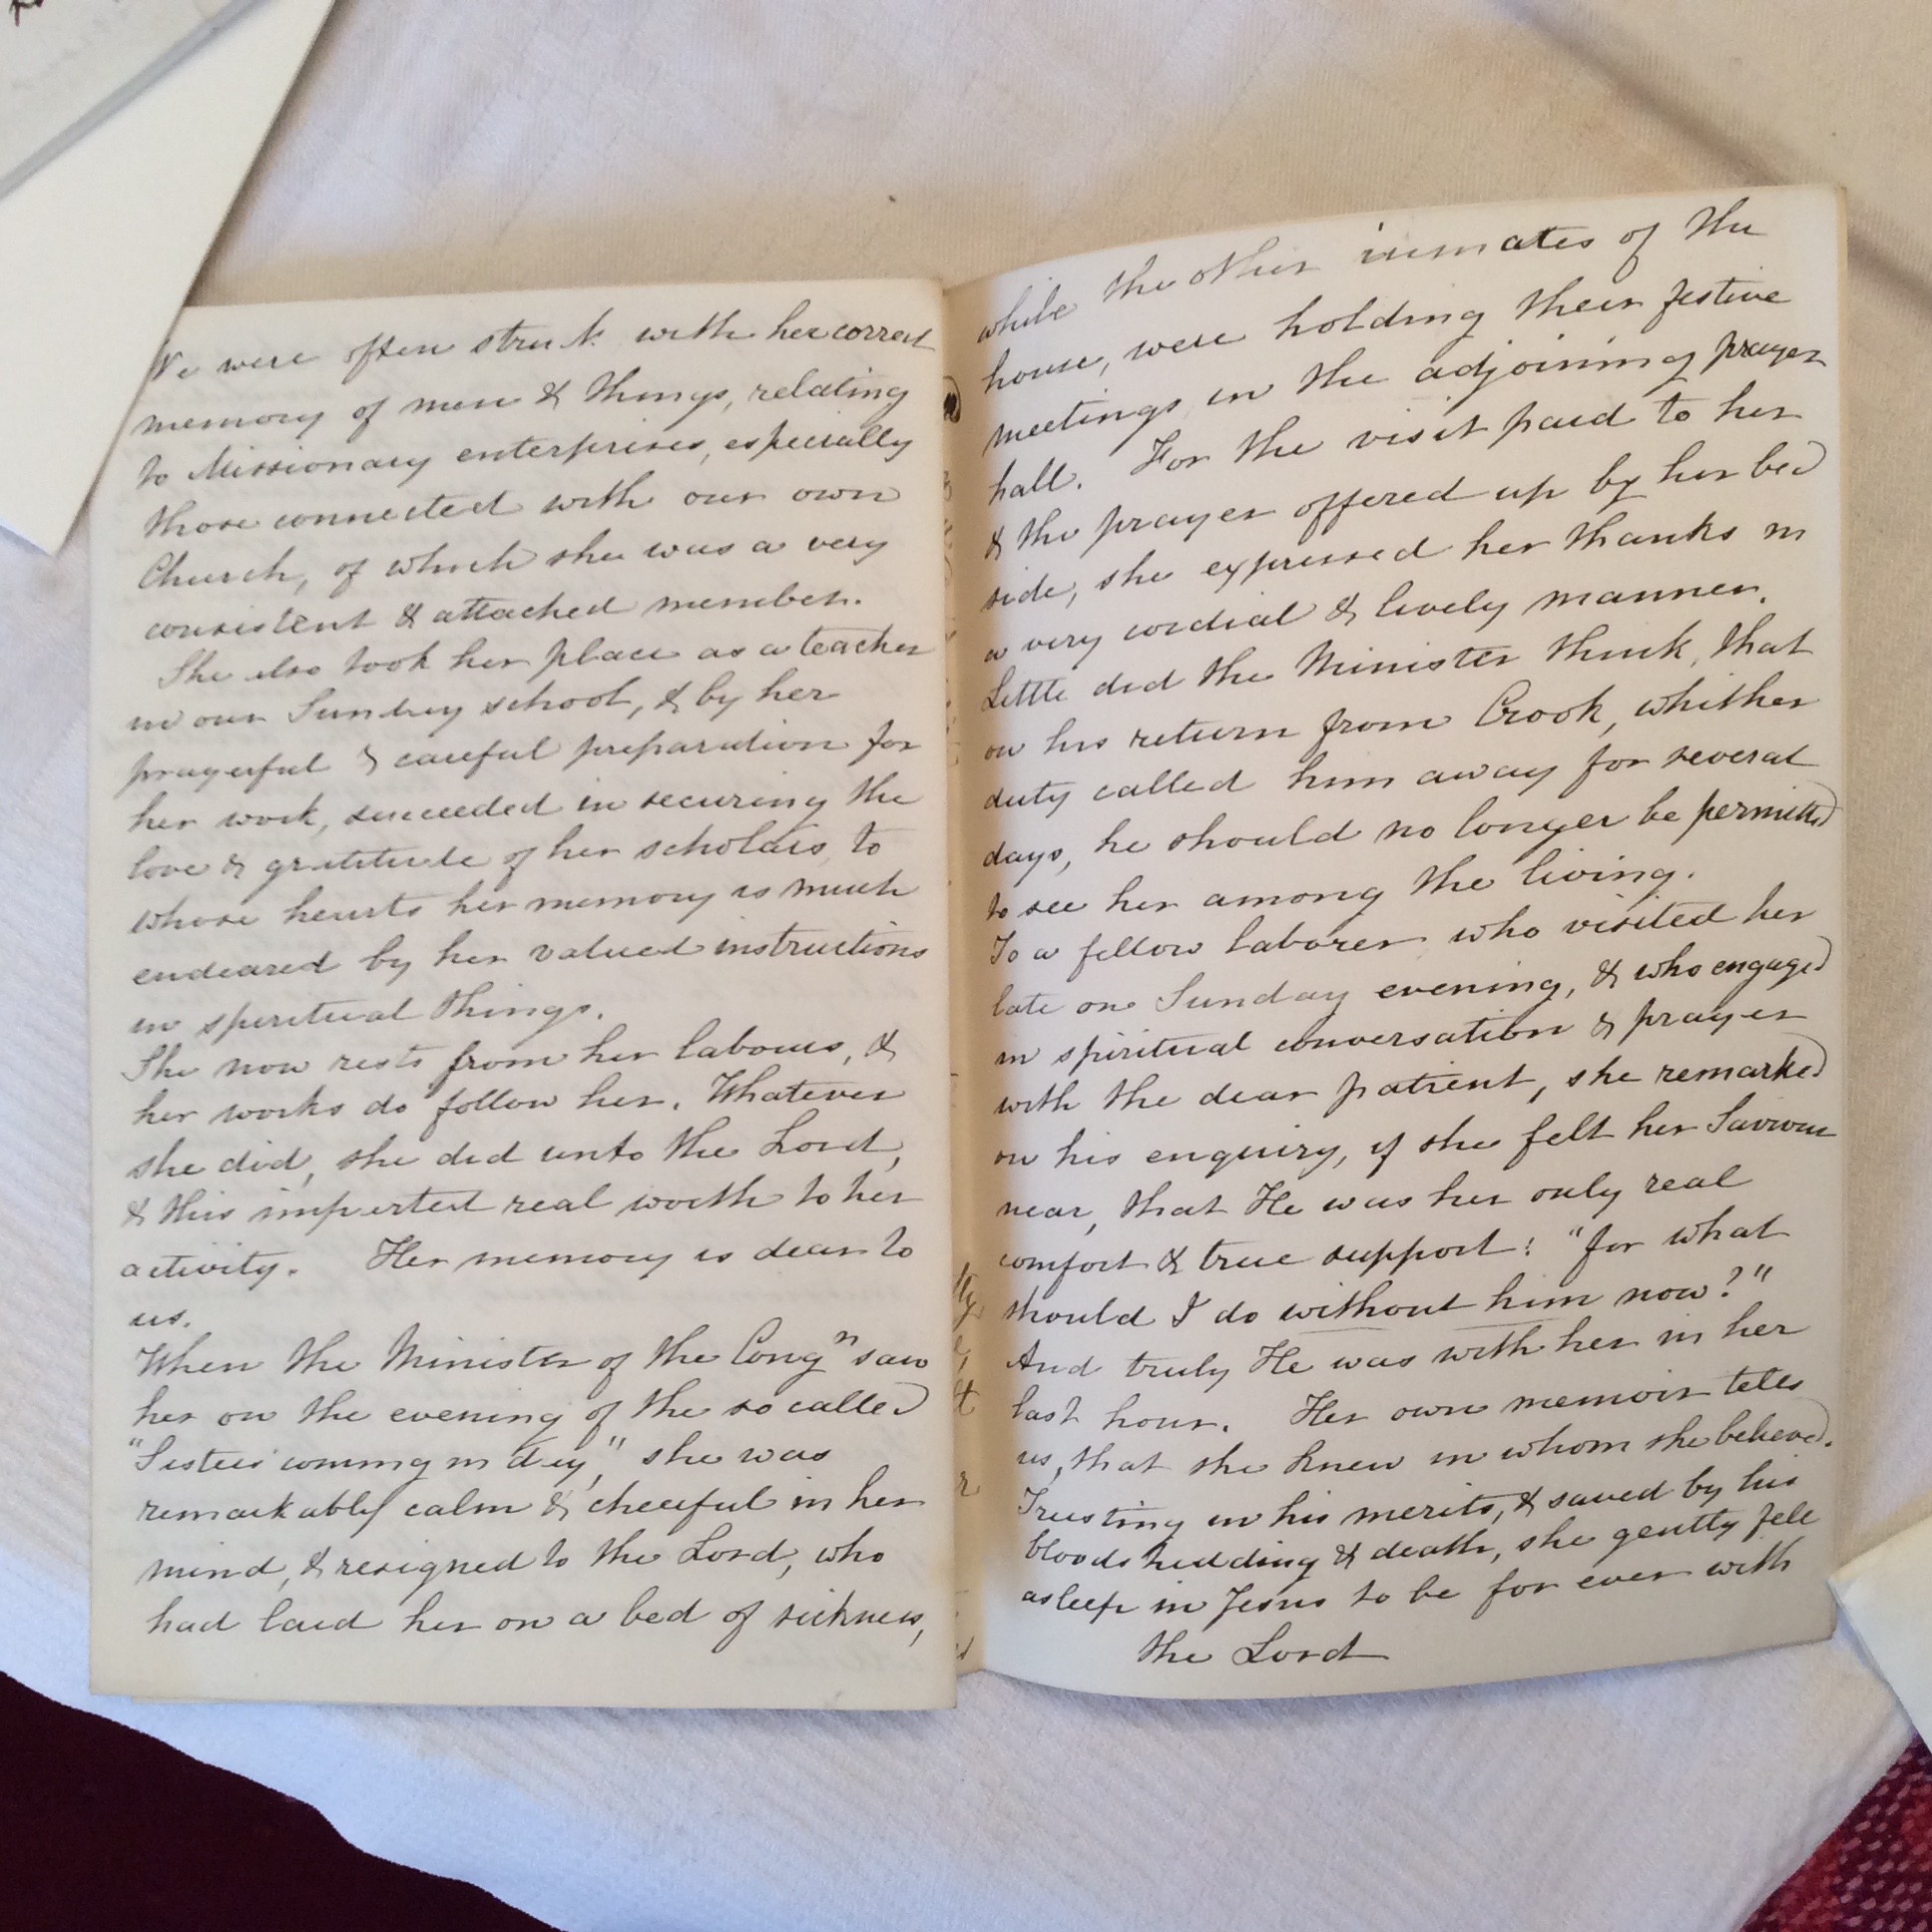 We were often struck with her correct
memory of men & things, relating
to Missionary enterprises, especially
those connected with our own
Church, of which she was a very
consistent & attached member.
She also took her place as a teacher
in our Sunday school, & by her
prayerful & careful preparation for
her work, succeeded in securing the
love & gratitude of her scholars, to
whose hearts her memory is much
endeared by her valued instructions
in spiritual things.
She now rests from her labours, &
her works do follow her. Whatever
she did, she did unto the Lord,
& this imparted real worth to her
activity. Her memory is dear to
us.
When the Minister of the Congn saw
her on the evening of the so called
"Sisters' coming in day," she was
remarkably calm & cheerful in her
mind, & resigned to the Lord, who
had laid her on a bed of sickness,
while the other inmates of the
house, were holding their festive
meetings in the adjoining prayer
hall. For the visit paid to her
& the prayer offered up by her bed
side, she expressed her thanks in
a very cordial & lively manner.
Little did the Minister think, that
on his return from Crook, whither
duty called him away for several
days, he should no longer be permitted
to see her among the living.
To a fellow laborer who visited her
late on Sunday evening, & who engaged
in spiritual conversation & prayer
with the dear patient, she remarked
on his enquiry, if she felt her Saviour
near, that He was her only real
comfort & true support: "for what
should I do without him now?"
And truly He was with her in her
last hour. Her own memoir tells
us, that she knew in whom she believed.
Trusting in his merits, & saved by his
bloodshedding & death, she gently fell
asleep in Jesus to be for ever with
the Lord